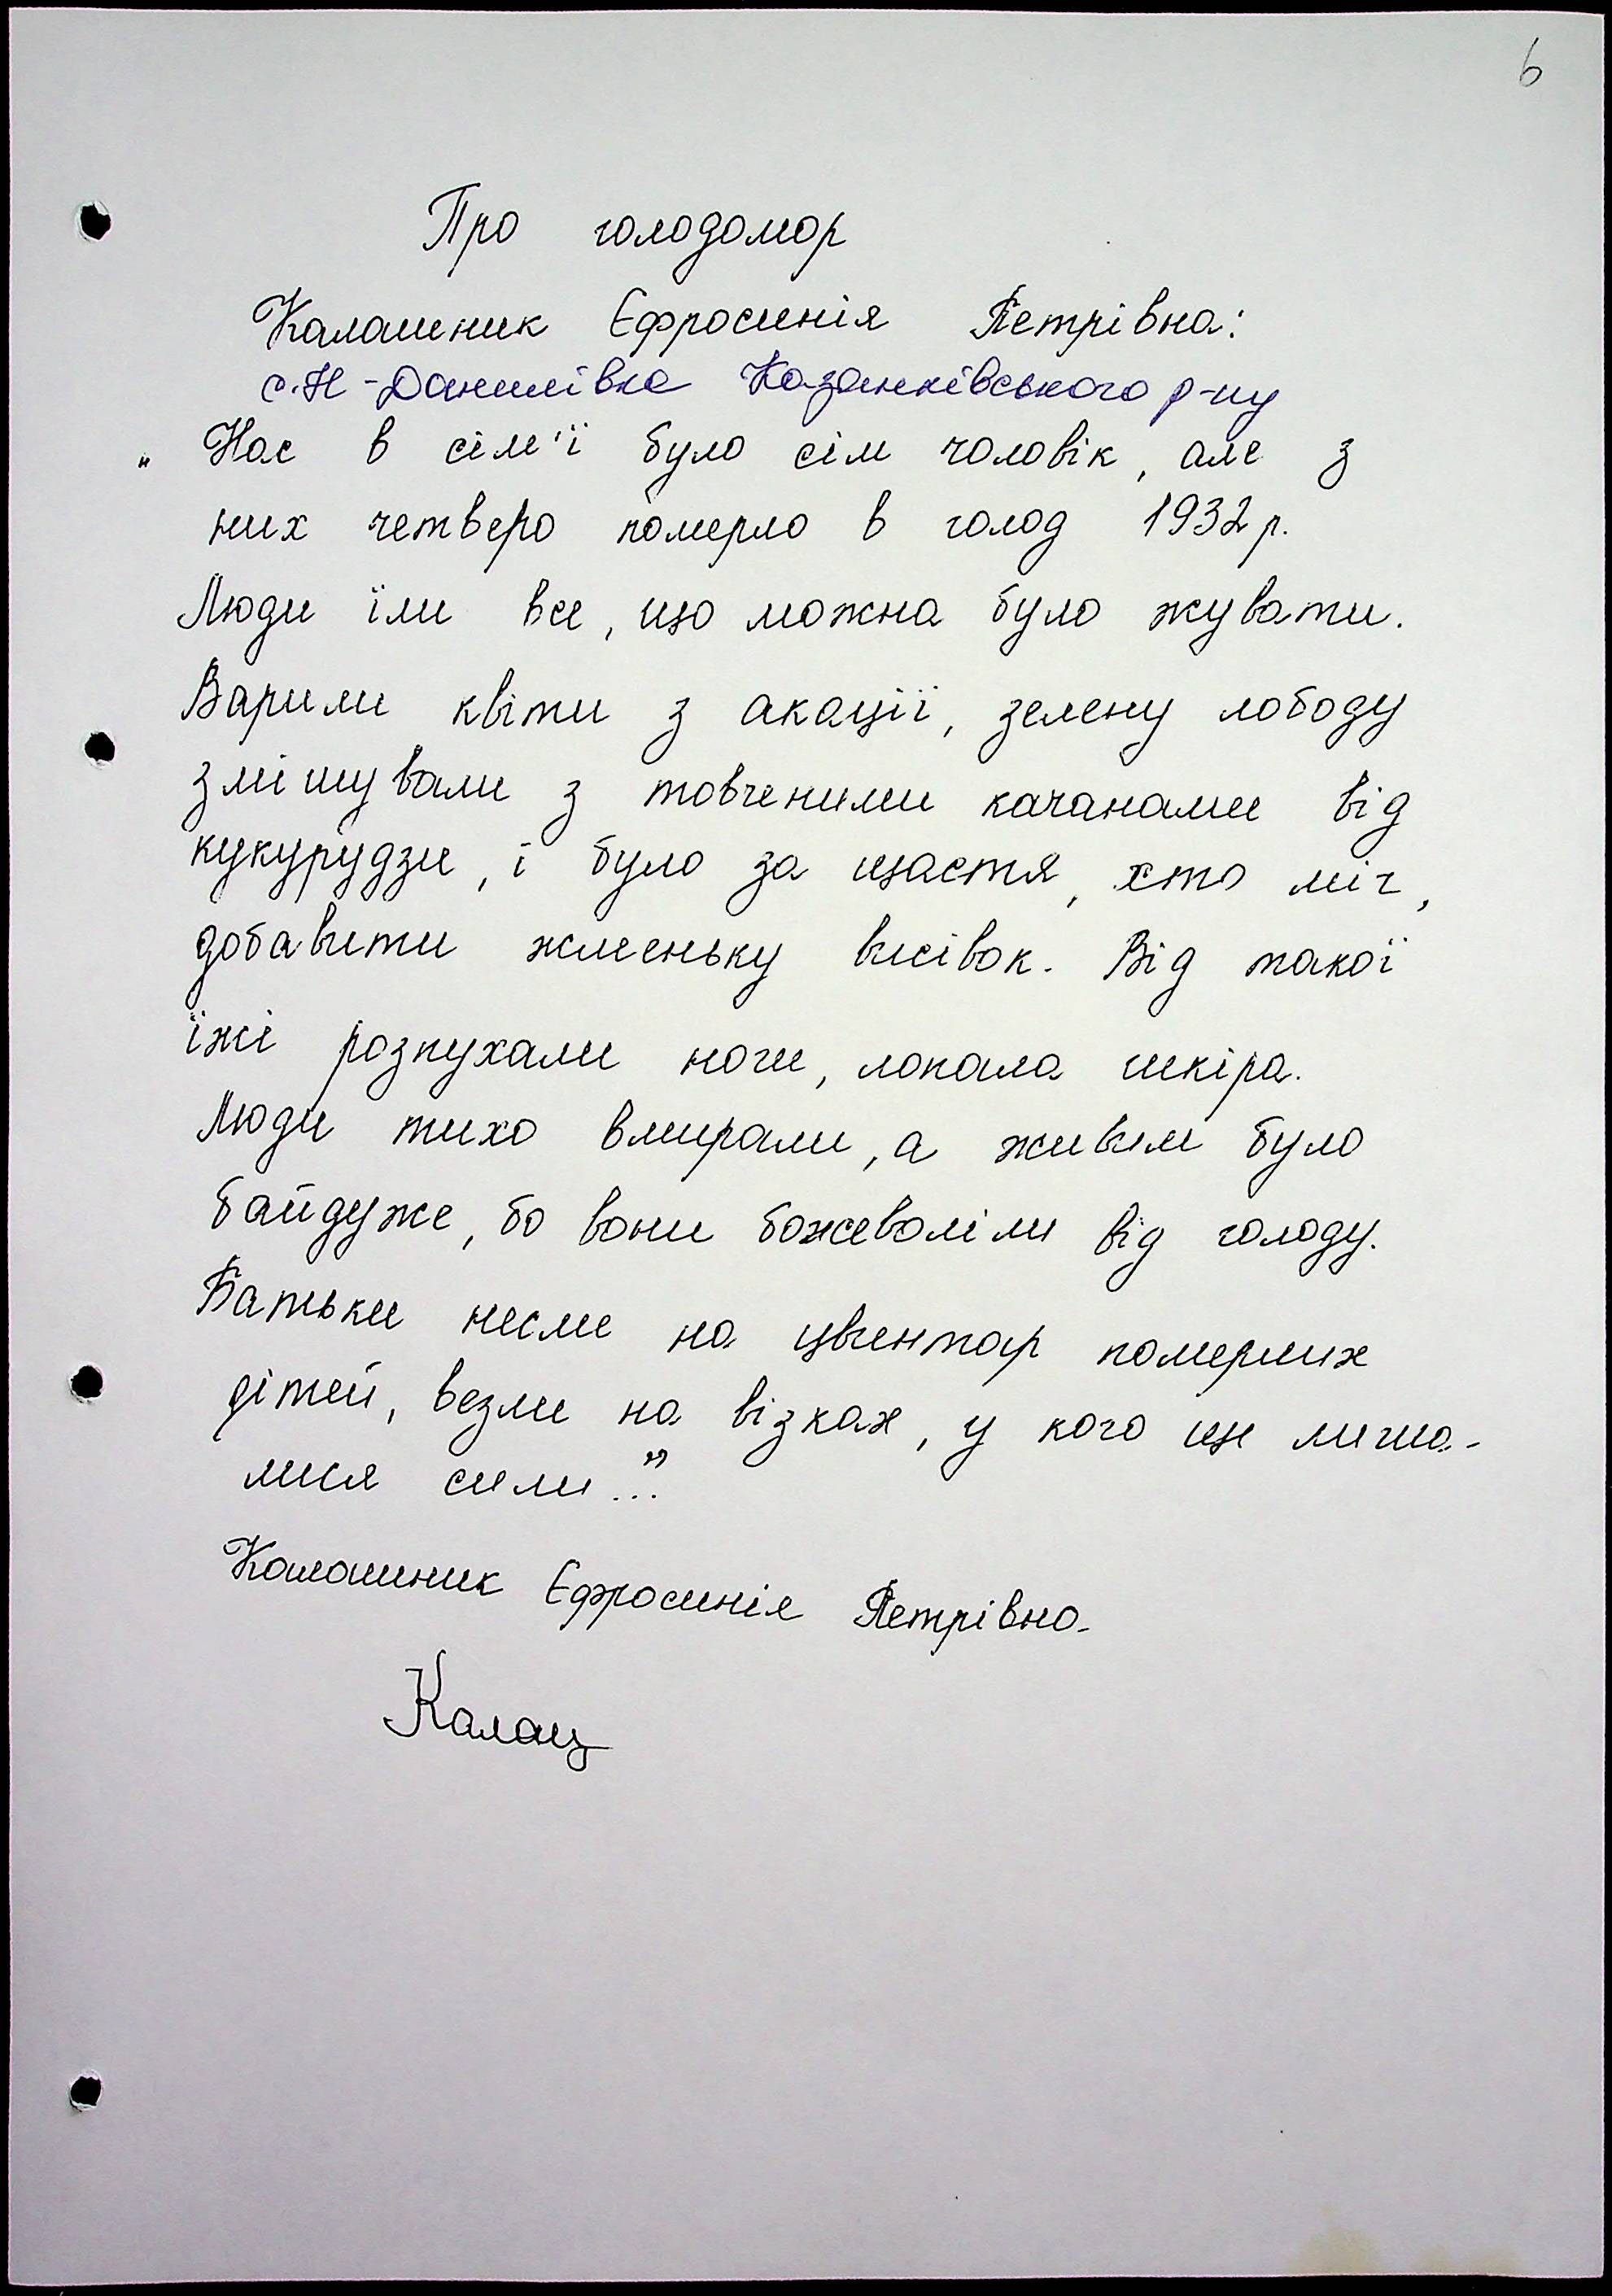 6
Про голодомор
Калашник Єфросинія Петрівна:
с. Н-Данилівка Казанківського р-ну
„ Нас в сім'ї було сім чоловік, але з
них четверо померло в голод 1932 р.
Люди їли все, що можна було жувати.
Варили квіти з акації, зелену лободу
змішували з товченими качанами від
кукурудзи, і було за щастя, хто міг,
добавити жменьку висівок. Від такої
їжі розпухали ноги, лопала шкіра.
Люди тихо вмирали, а живим було
байдуже, бо вони божеволіли від голоду.
Батьки несли на цвинтар померлих
дітей, везли на візках, у кого ще лиша-
лися сили..."
Калашник Єфросинія Петрівна.
Калаш